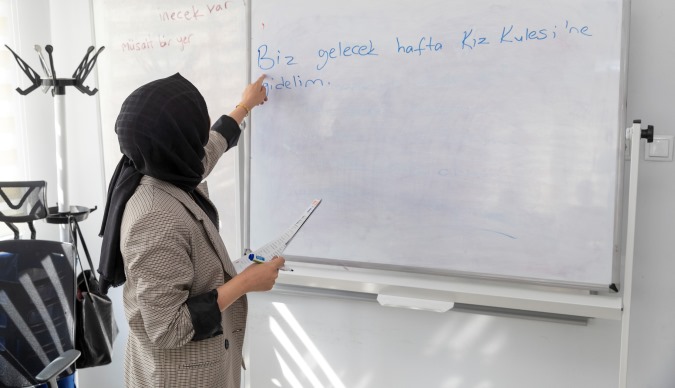 inecek var
müsait bir yer
Biz gelecek hafta Kız Kulesi'ne
gidelim.